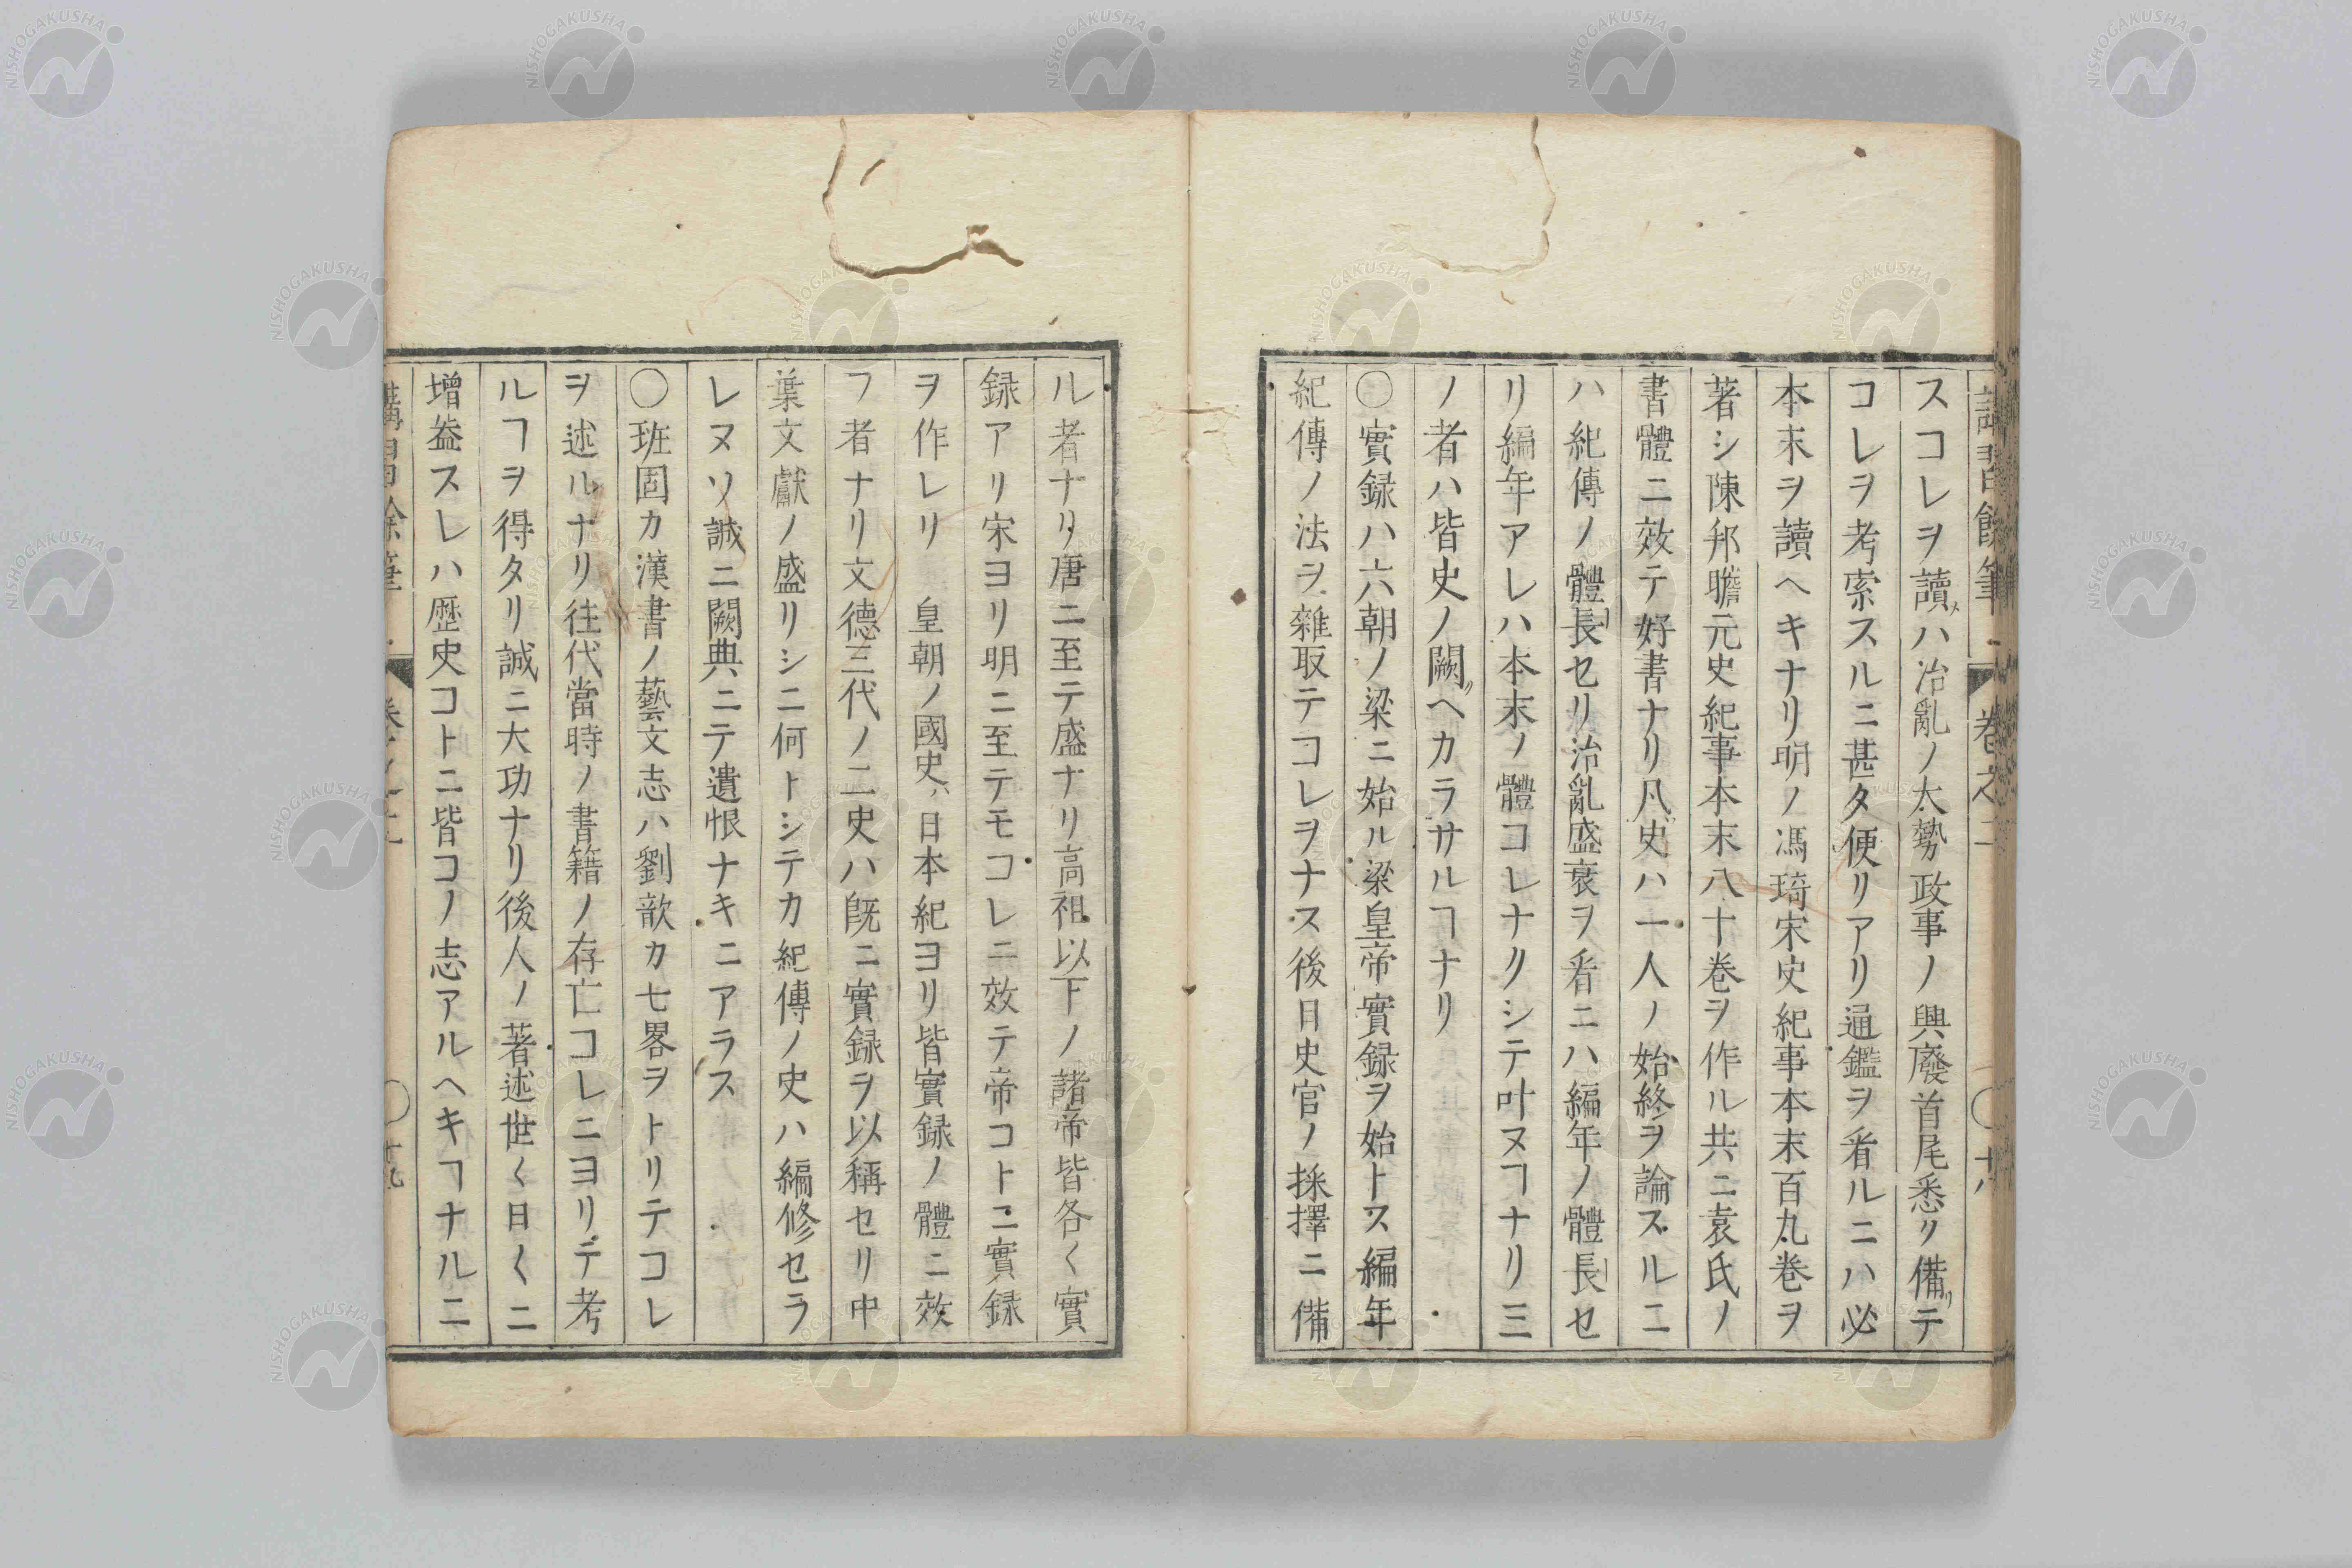 講習餘筆 卷之二 〇十八
スコレヲ讀メハ治亂ノ大勢政事ノ興廢首尾悉ク備リテ
コレヲ考索スルニ甚タ便リアリ通鑑ヲ看ルニハ必
本末ヲ讀ヘキナリ明ノ馮琦宋史紀事本末百九卷ヲ
著シ陳邦瞻元史紀事本末八十卷ヲ作ル共ニ袁氏ノ
書體ニ效テ好書ナリ凡史ハ一人ノ始終ヲ論スルニ
ハ紀傳ノ體長セリ治亂盛衰ヲ看ニハ編年ノ體長セ
リ編年アレハ本末ノ體コレナクシテ叶ヌヿナリ三
ノ者ハ皆史ノ闕ヘカラサルヿナリ
〇實録ハ六朝ノ梁ニ始ル梁皇帝實録ヲ始トス編年
紀傳ノ法ヲ雜取テコレヲナス後日史官ノ採擇ニ備
ル者ナリ唐ニ至テ盛ナリ高祖以下ノ諸帝皆各〱實
録アリ宋ヨリ明ニ至テモコレニ效テ帝コトニ實録
ヲ作レリ 皇朝ノ國史ハ日本紀ヨリ皆實録ノ體ニ效
フ者ナリ文德三代ノ二史ハ既ニ實録ヲ以稱セリ中
葉文獻ノ盛リシニ何トシテカ紀傳ノ史ハ編修セラ
レヌソ誠ニ闕典ニテ遺恨ナキニアラス
〇班固カ漢書ノ藝文志ハ劉歆カ七畧ヲトリテコレ
ヲ述ルナリ往代當時ノ書籍ノ存亡コレニヨリテ考
ルヿヲ得タリ誠ニ大功ナリ後人ノ著述世〱日〱ニ
增益スレハ歴史コトニ皆コノ志アルヘキヿナルニ
講習餘筆 卷之二 〇十九
NISHOGAKUSHA